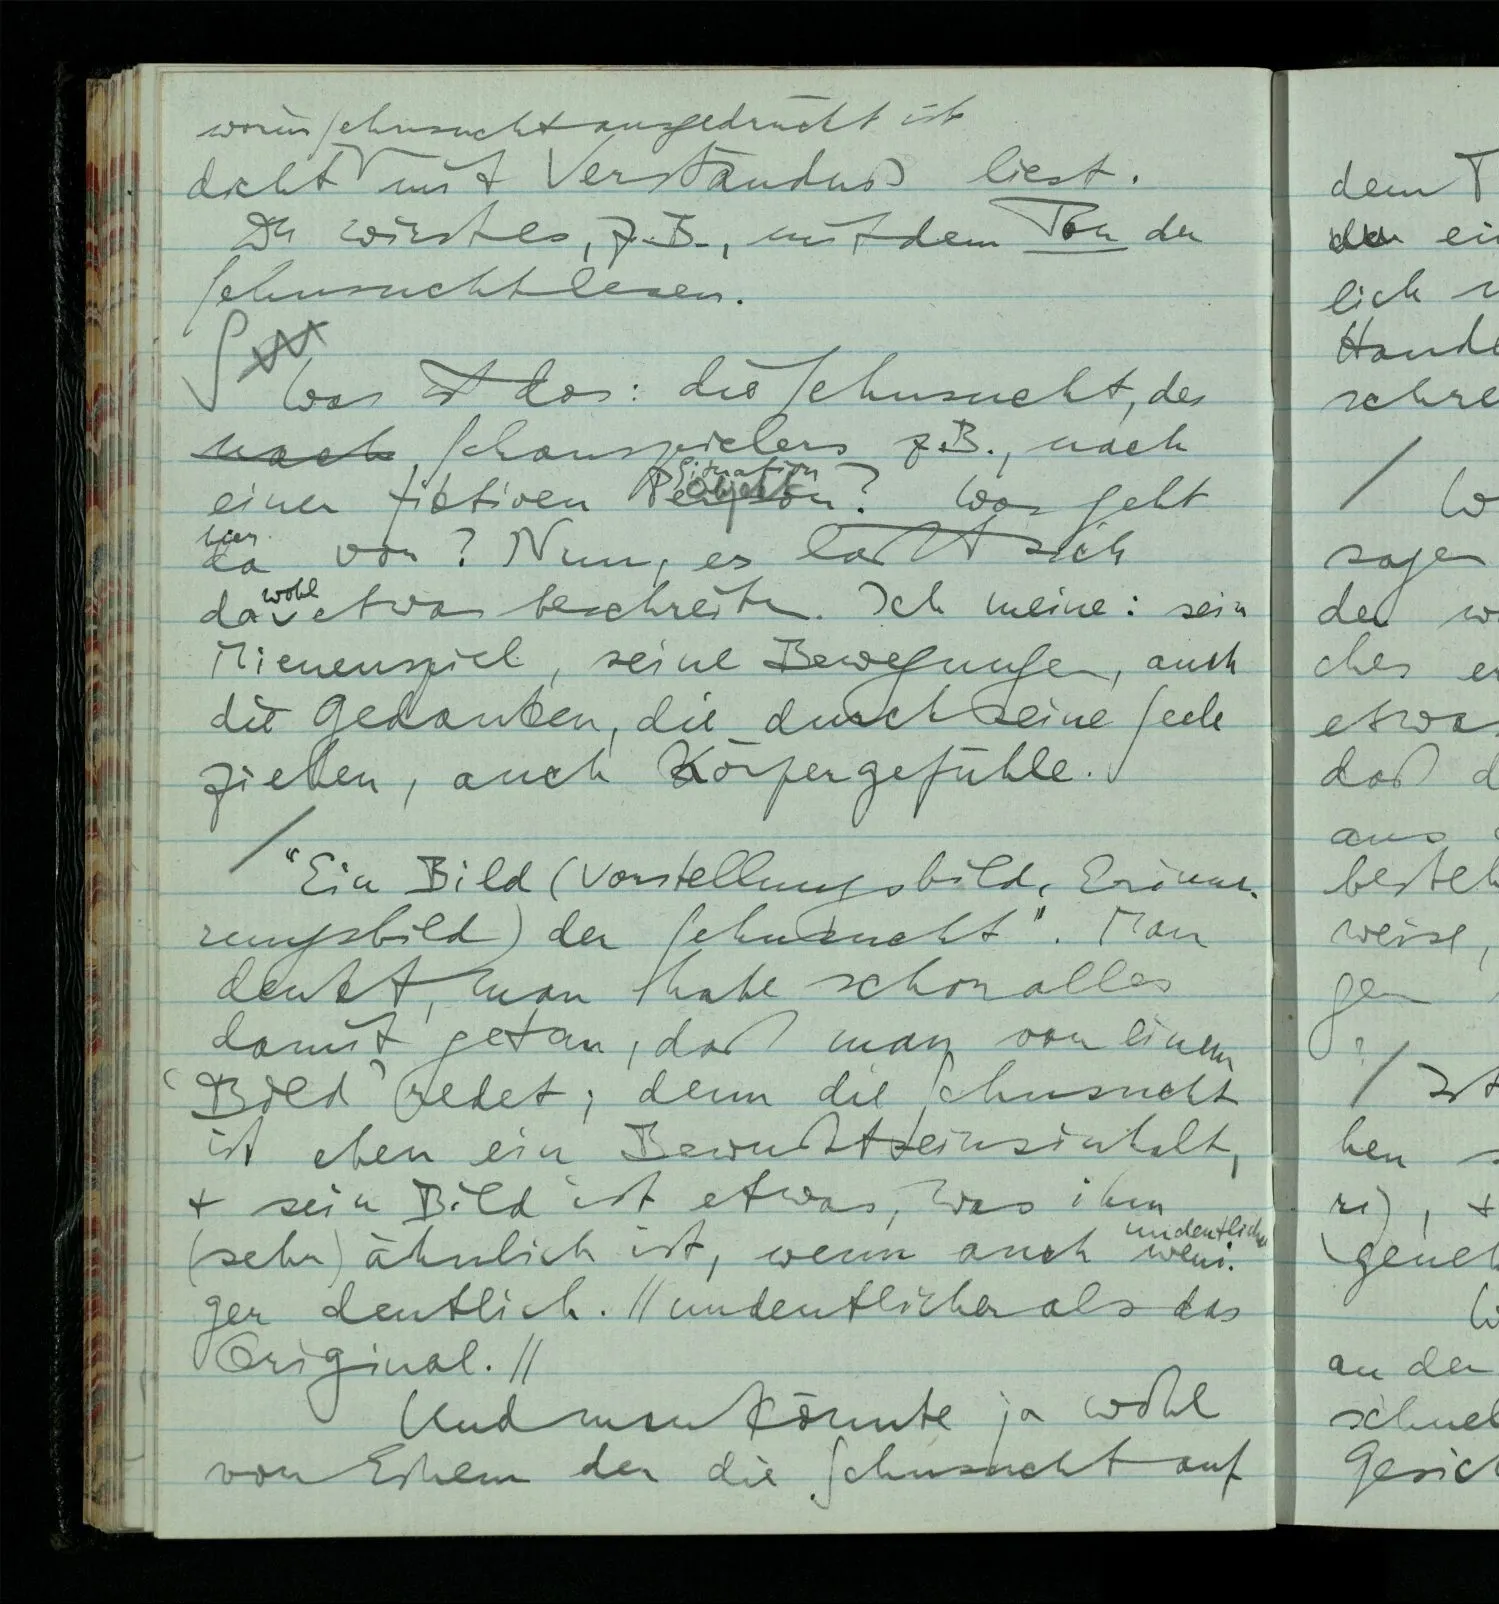 worin Sehnsucht ausgedrückt ist
dicht mit Verständnis liest.
Du wirst es, z.B., mit dem Ton der
Sehnsucht lesen.
∫
Was ist das: die Sehnsucht, des
nach Schauspielers z.B., nach
Situation
Objekt
einer fiktiven Person? Was geht
hier
da vor? Nun, es läßt sich
wohl
da etwas beschreiben. Ich meine: sein
Mienenspiel, seine Bewegungen, auch
die Gedanken, die durch seine Seele
ziehen, auch Körpergefühle.
/
"Ein Bild (Vorstellungsbild, Erinne-
rungsbild) der Sehnsucht". Man
denkt, man habe schon alles
damit getan, daß man von einem
'Bild' redet; denn die Sehnsucht
ist eben ein Bewußtseinsinhalt,
+ sein Bild ist etwas, was ihm
undeutlicher
(sehr) ähnlich ist, wenn auch weni-
ger deutlich. // undeutlicher als das
Original. //
Und man könnte ja wohl
von Einem der die Sehnsucht auf
dem T
der ei
lich
Hande
schre
/ W
sagen
der w
ches er
etwas
daß d
aus
besteh
weise,
gen
? / Ist
ben s
ri), +
geneh
W
an der
schnel
Gesich